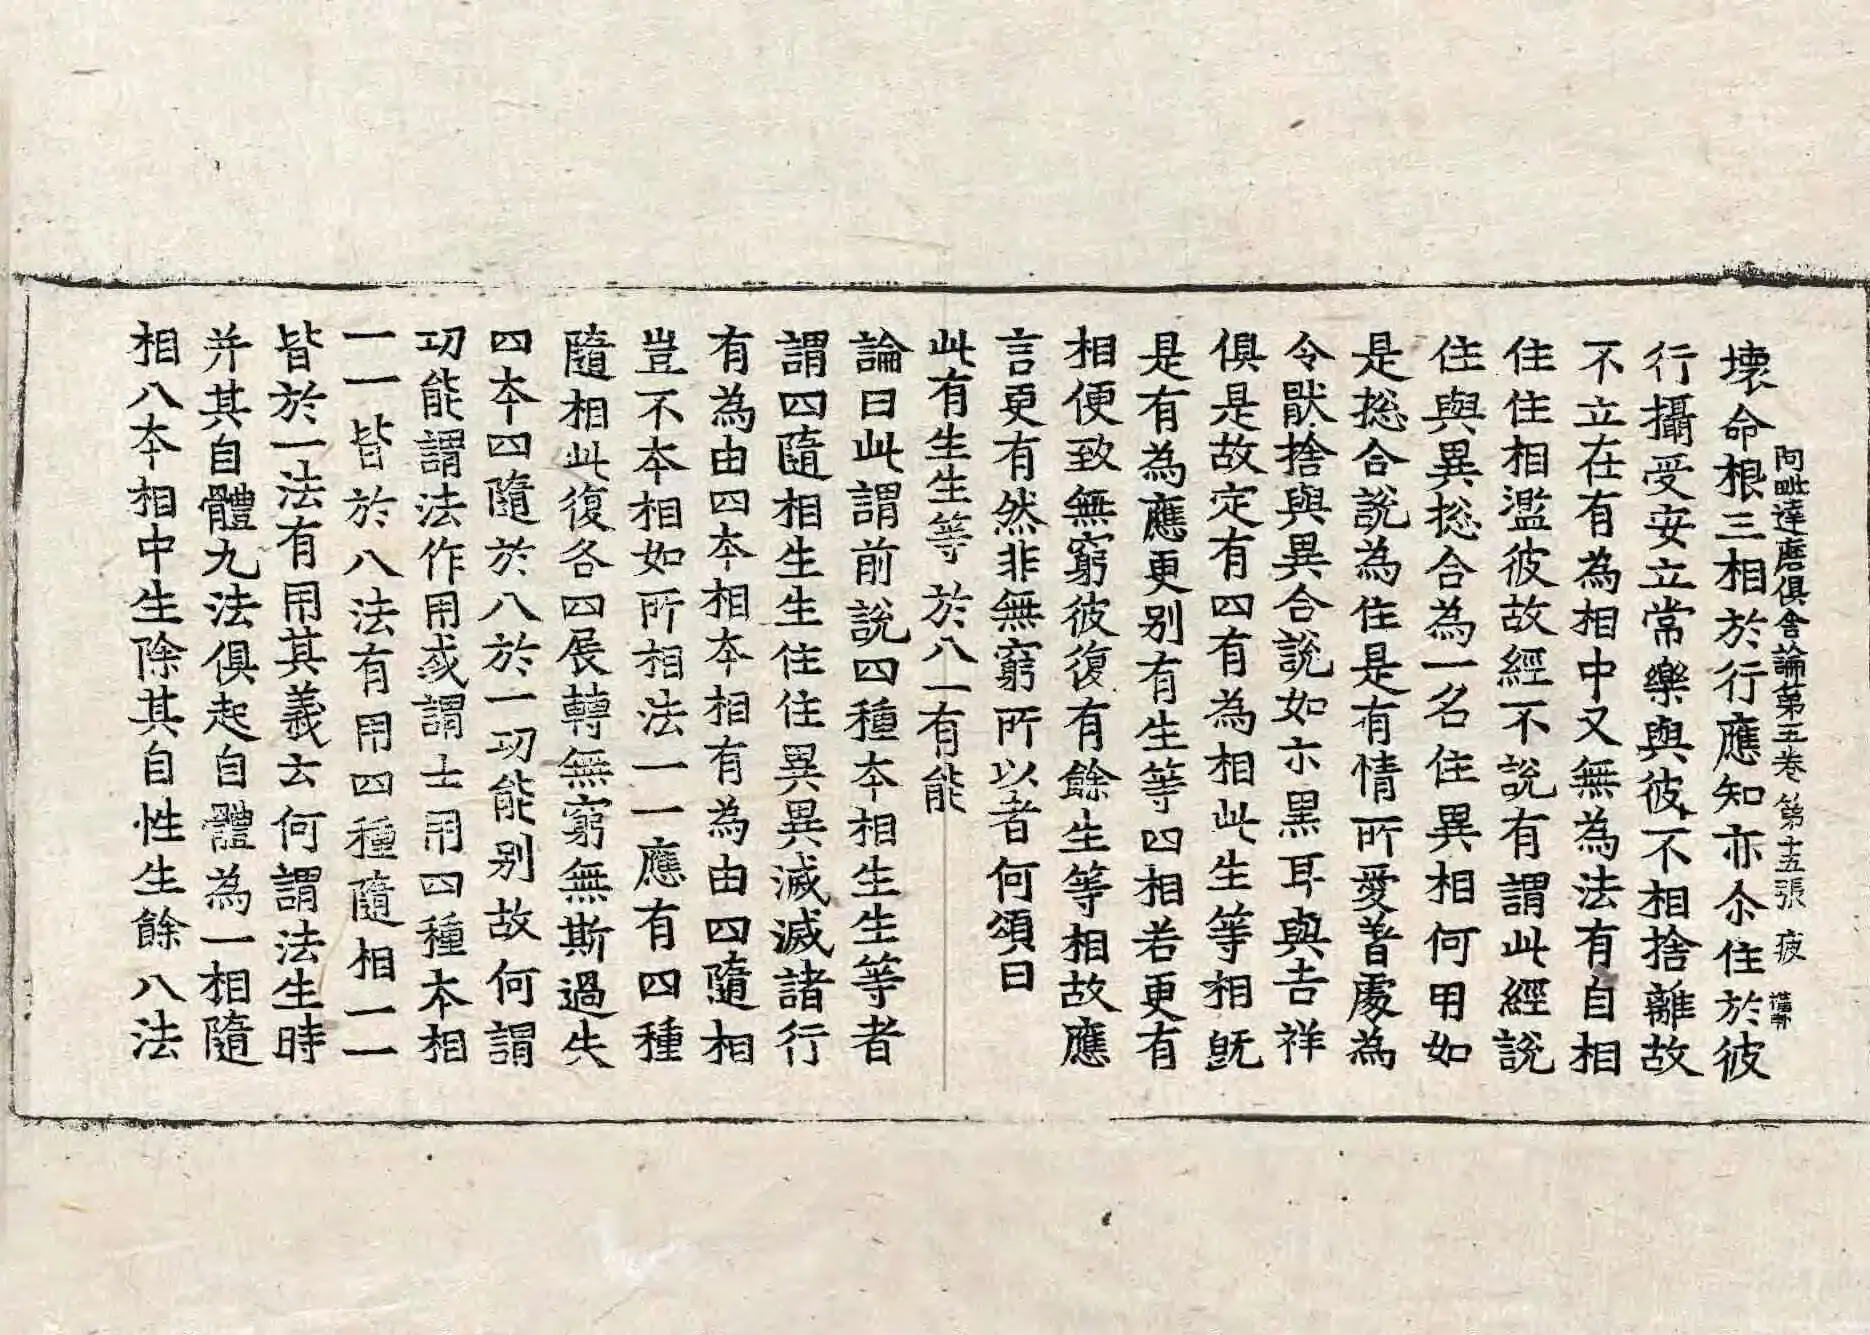 阿毗達磨俱舍論第五卷 第十五張 疲
壞命根三相於行應知亦尒住於彼
行攝受安立常樂與彼不相捨離故
不立在有為相中又無為法有自相
住住相濫彼故經不說有謂此經說
住與異揔合為一名住異相何用如
是揔合說為住是有情所愛著處為
令猒捨與異合說如示黑耳與吉祥
俱是故定有四有為相此生等相旣
是有為應更別有生等四相若更有
相便致無窮彼復有餘生等相故應
言更有然非無窮所以者何頌曰
此有生生等 於八一有能
論曰此謂前說四種本相生生等者
謂四隨相生生住住異異滅滅諸行
有為由四本相本相有為由四隨相
豈不本相如所相法一一應有四種
隨相此復各四展轉無窮無斯過失
四本四隨於八於一功能別故何謂
功能謂法作用或謂士用四種本相
一一皆於八法有用四種隨相一一
皆於一法有用其義云何謂法生時
并其自體九法俱起自體為一相隨
相八本相中生除其自性生餘八法